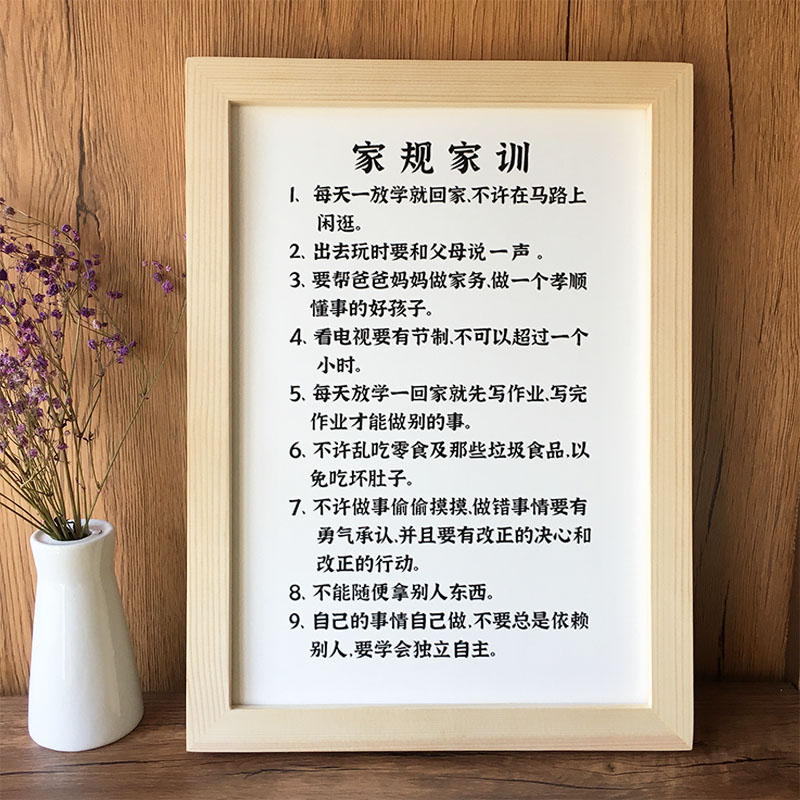 家规家训
1、每天一放学就回家、不许在马路上
闲逛。
2、出去玩时要和父母说一声。
3、要帮爸爸妈妈做家务、做一个孝顺
懂事的好孩子。
4、看电视要有节制、不可以超过一个
小时。
5、每天放学一回家就先写作业、写完
作业才能做别的事。
6、不许乱吃零食及那些垃圾食品、以
免吃坏肚子。
7、不许做事偷偷摸摸、做错事情要有
勇气承认、并且要有改正的决心和
改正的行动。
8、不能随便拿别人东西。
9、自己的事情自己做、不要总是依赖
别人、要学会独立自主。